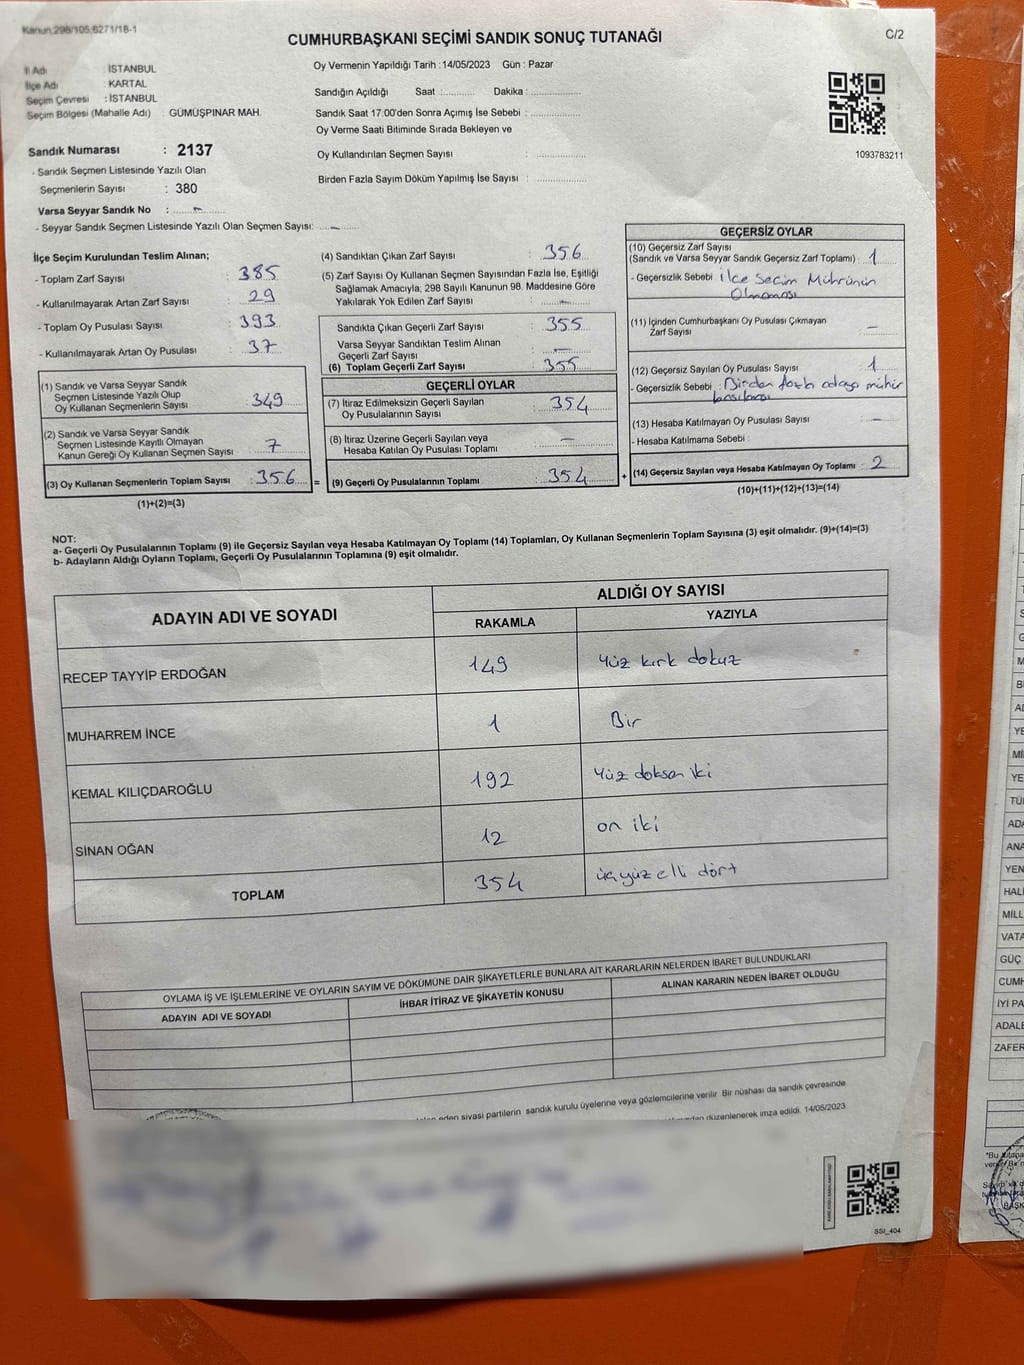 Kanun,298/105,6271/18-1
C/2
CUMHURBAŞKANI SEÇİMİ SANDIK SONUÇ TUTANAĞI
İl Adı : İSTANBUL
İlçe Adı : KARTAL
Seçim Çevresi : İSTANBUL
Seçim Bölgesi (Mahalle Adı) : GÜMÜŞPINAR MAH.
Sandık Numarası : 2137
- Sandık Seçmen Listesinde Yazılı Olan
Seçmenlerin Sayısı : 380
Varsa Seyyar Sandık No : -
- Seyyar Sandık Seçmen Listesinde Yazılı Olan Seçmen Sayısı: -
Oy Vermenin Yapıldığı Tarih :14/05/2023 Gün : Pazar
Sandığın Açıldığı Saat :............ Dakika :...................
Sandık Saat 17:00'den Sonra Açımış İse Sebebi :...................
Oy Verme Saati Bitiminde Sırada Bekleyen ve
Oy Kullandırılan Seçmen Sayısı :...................
Birden Fazla Sayım Döküm Yapılmış İse Sayısı :...................
1093783211
İlçe Seçim Kurulundan Teslim Alınan;
- Toplam Zarf Sayısı : 385
- Kullanılmayarak Artan Zarf Sayısı : 29
- Toplam Oy Pusulası Sayısı : 393
- Kullanılmayarak Artan Oy Pusulası : 37
(1) Sandık ve Varsa Seyyar Sandık
Seçmen Listesinde Yazılı Olup
Oy Kullanan Seçmenlerin Sayısı : 349
(2) Sandık ve Varsa Seyyar Sandık
Seçmen Listesinde Kayıtlı Olmayan
Kanun Gereği Oy Kullanan Seçmen Sayısı : 7
(3) Oy Kullanan Seçmenlerin Toplam Sayısı : 356 =
(1)+(2)=(3)
(4) Sandıktan Çıkan Zarf Sayısı : 356
(5) Zarf Sayısı Oy Kullanan Seçmen Sayısından Fazla İse, Eşitliği
Sağlamak Amacıyla; 298 Sayılı Kanunun 98. Maddesine Göre
Yakılarak Yok Edilen Zarf Sayısı : -
Sandıkta Çıkan Geçerli Zarf Sayısı : 355
Varsa Seyyar Sandıktan Teslim Alınan
Geçerli Zarf Sayısı : -
(6) Toplam Geçerli Zarf Sayısı : 355
GEÇERLİ OYLAR
(7) İtiraz Edilmeksizin Geçerli Sayılan
Oy Pusulalarının Sayısı : 354
(8) İtiraz Üzerine Geçerli Sayılan veya
Hesaba Katılan Oy Pusulası Toplamı : -
(9) Geçerli Oy Pusulalarının Toplamı : 354 +
GEÇERSİZ OYLAR
(10) Geçersiz Zarf Sayısı
(Sandık ve Varsa Seyyar Sandık Geçersiz Zarf Toplamı) : 1
- Geçersizlik Sebebi : İlçe Seçim Mührünün
Olmaması
(11) İçinden Cumhurbaşkanı Oy Pusulası Çıkmayan
Zarf Sayısı : -
(12) Geçersiz Sayılan Oy Pusulası Sayısı : 1
- Geçersizlik Sebebi : Birden fazla adaya mühür
basılması
(13) Hesaba Katılmayan Oy Pusulası Sayısı : -
- Hesaba Katılmama Sebebi :
(14) Geçersiz Sayılan veya Hesaba Katılmayan Oy Toplamı : 2
(10)+(11)+(12)+(13)=(14)
NOT:
a- Geçerli Oy Pusulalarının Toplamı (9) ile Geçersiz Sayılan veya Hesaba Katılmayan Oy Toplamı (14) Toplamları, Oy Kullanan Seçmenlerin Toplam Sayısına (3) eşit olmalıdır. (9)+(14)=(3)
b- Adayların Aldığı Oyların Toplamı, Geçerli Oy Pusulalarının Toplamına (9) eşit olmalıdır.
ADAYIN ADI VE SOYADI
ALDIĞI OY SAYISI
RAKAMLA YAZIYLA
RECEP TAYYİP ERDOĞAN 149 Yüz kırk dokuz
MUHARREM İNCE 1 Bir
KEMAL KILIÇDAROĞLU 192 Yüz doksan iki
SİNAN OĞAN 12 on iki
TOPLAM 354 üçyüz elli dört
OYLAMA İŞ VE İŞLEMLERİNE VE OYLARIN SAYIM VE DÖKÜMÜNE DAİR ŞİKAYETLERLE BUNLARA AİT KARARLARIN NELERDEN İBARET BULUNDUKLARI
ADAYIN ADI VE SOYADI İHBAR İTİRAZ VE ŞİKAYETİN KONUSU ALINAN KARARIN NEDEN İBARET OLDUĞU
eden siyasi partilerin sandık kurulu üyelerine veya gözlemcilerine verilir. Bir nüshası da sandık çevresinde
düzenlenerek imza edildi. 14/05/2023
SSI_404
GÜÇ
İYİ PA
ZAFER